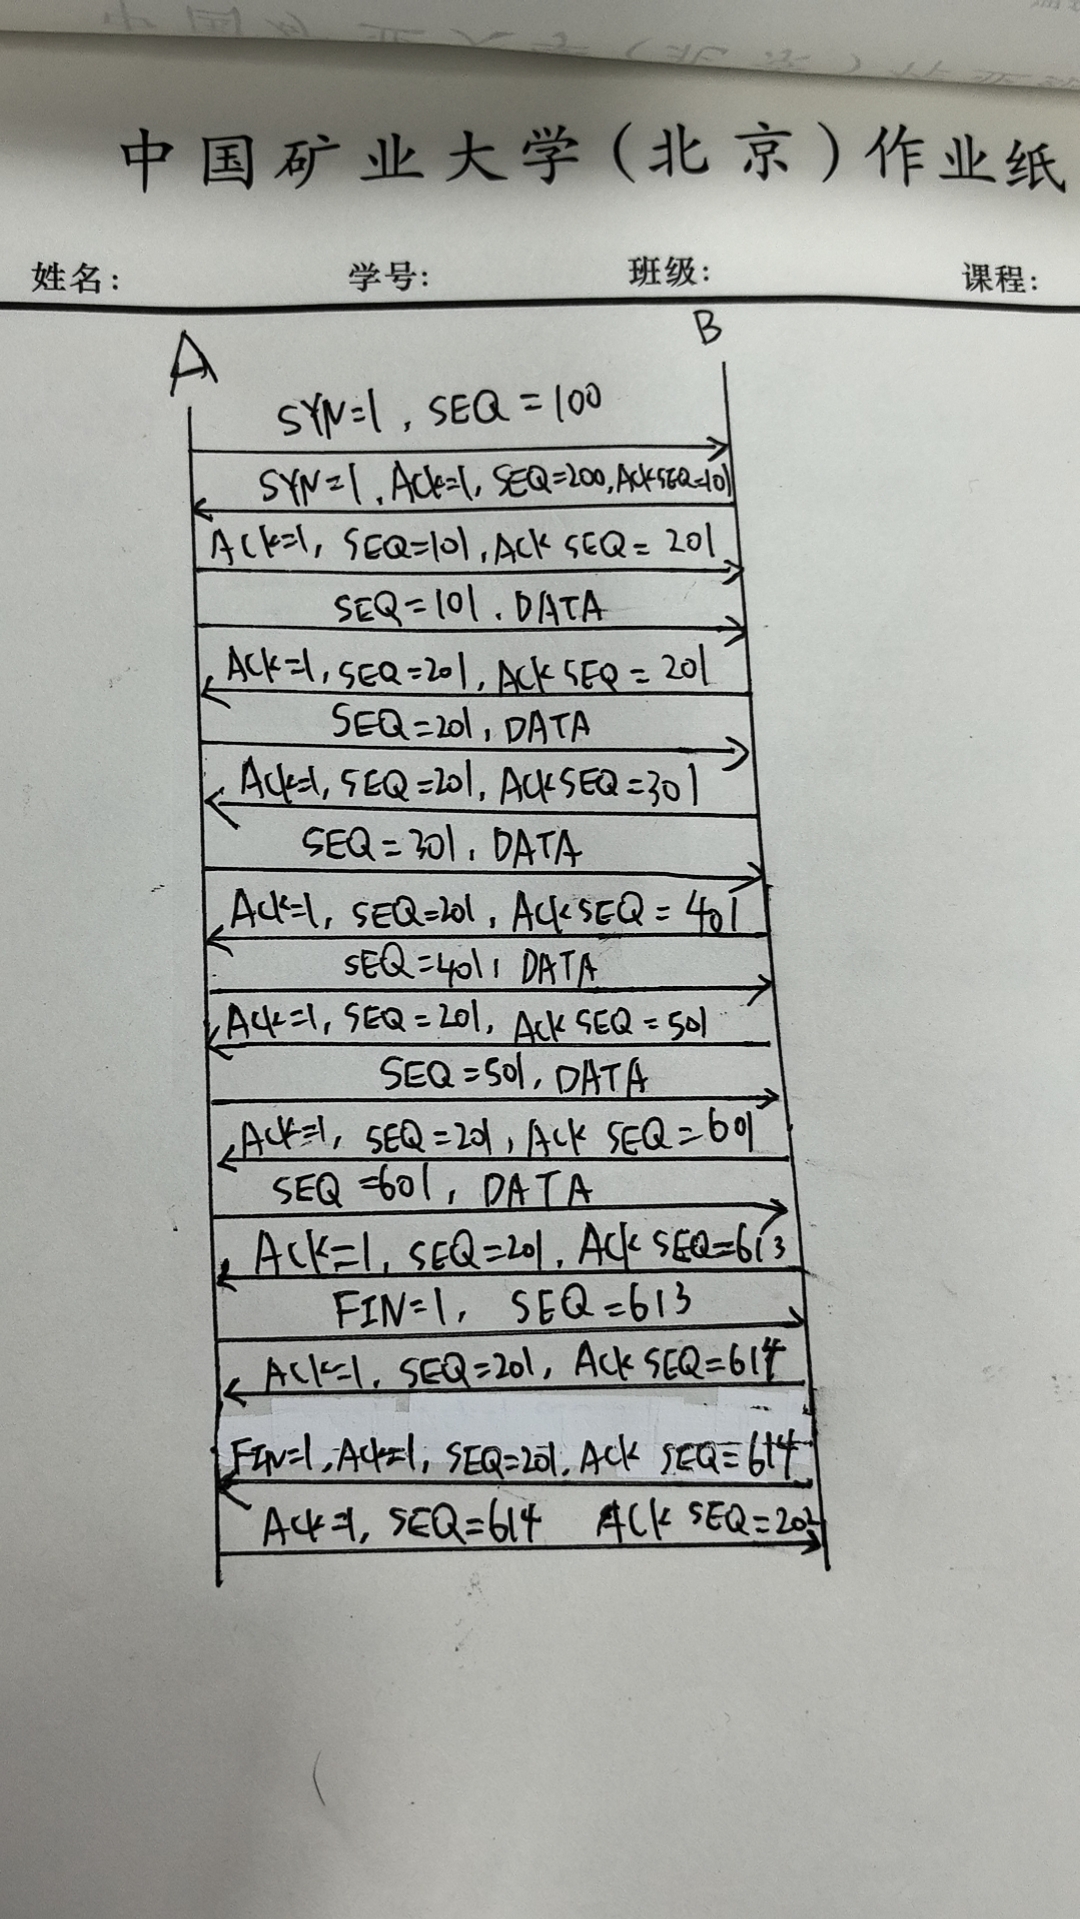 中国矿业大学(北京)作业纸
姓名: 学号: 班级: 课程:
A B
SYN=1, SEQ=100
SYN=1, ACK=1, SEQ=200, ACKSEQ=101
ACK=1, SEQ=101, ACK SEQ=201
SEQ=101, DATA
ACK=1, SEQ=201, ACK SEQ=201
SEQ=201, DATA
ACK=1, SEQ=201, ACKSEQ=301
SEQ=301, DATA
ACK=1, SEQ=201, ACKSEQ=401
SEQ=401, DATA
ACK=1, SEQ=201, ACK SEQ=501
SEQ=501, DATA
ACK=1, SEQ=201, ACK SEQ=601
SEQ=601, DATA
ACK=1, SEQ=201, ACK SEQ=613
FIN=1, SEQ=613
ACK=1, SEQ=201, ACK SEQ=614
FIN=1, ACK=1, SEQ=201, ACK SEQ=614
ACK=1, SEQ=614 ACK SEQ=202